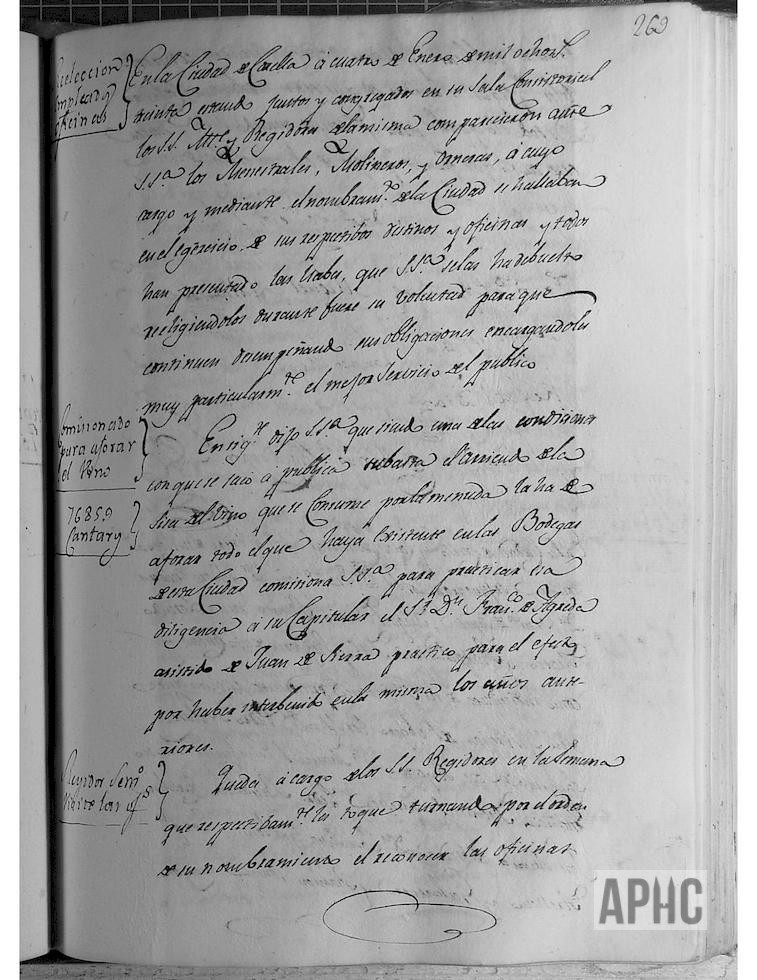 269
Reeleccion
empleados
oficinas
En la Ciudad de Corella á cuatro de Enero de mil ochost.
treinta estand juntos y congregados en su Sala Consistorial
los SS. Alte. y Regidores de la misma comparecieron ante
S.Sª. los Menestrales, Molineros, y Orneras, á cuyo
cargo y mediante el nombramto. de la Ciudad se hallaban
en el egercicio de sus respectibos destinos y oficinas y todos
han presentado las llabes, que S.Sª. selas ha debuelto
reeligiendolos durante fuere su voluntad para que
continuen desempeñand sus obligaciones encargandoles
muy particularmte. el mejor Servicio del publico
Comisionado
para aforar
el Vino
En sigte. dijo S.Sª. que siend una delas condiciones
con que se saco á publica subasta el arriend dela
Sisa del Vino que se Consume por la menuda la ha de
76859
Cantars
aforar todo el que haya existente en las Bodegas
de esta Ciudad comisiona S.Sª. para practicar esa
diligencia á su Capitular el Sr. Dn. Franco. de Agreda
asistido de Juan de Sierra practico para el efecto
por haber interbenido en la misma los años ante-
riores.
Regidor Semo.
visite las ofs.
Queda á cargo de los SS. Regidores en la Semana
que respectibamte. les toque turnando por el orden
de su nombramiento el reconocer las oficinas
APHC